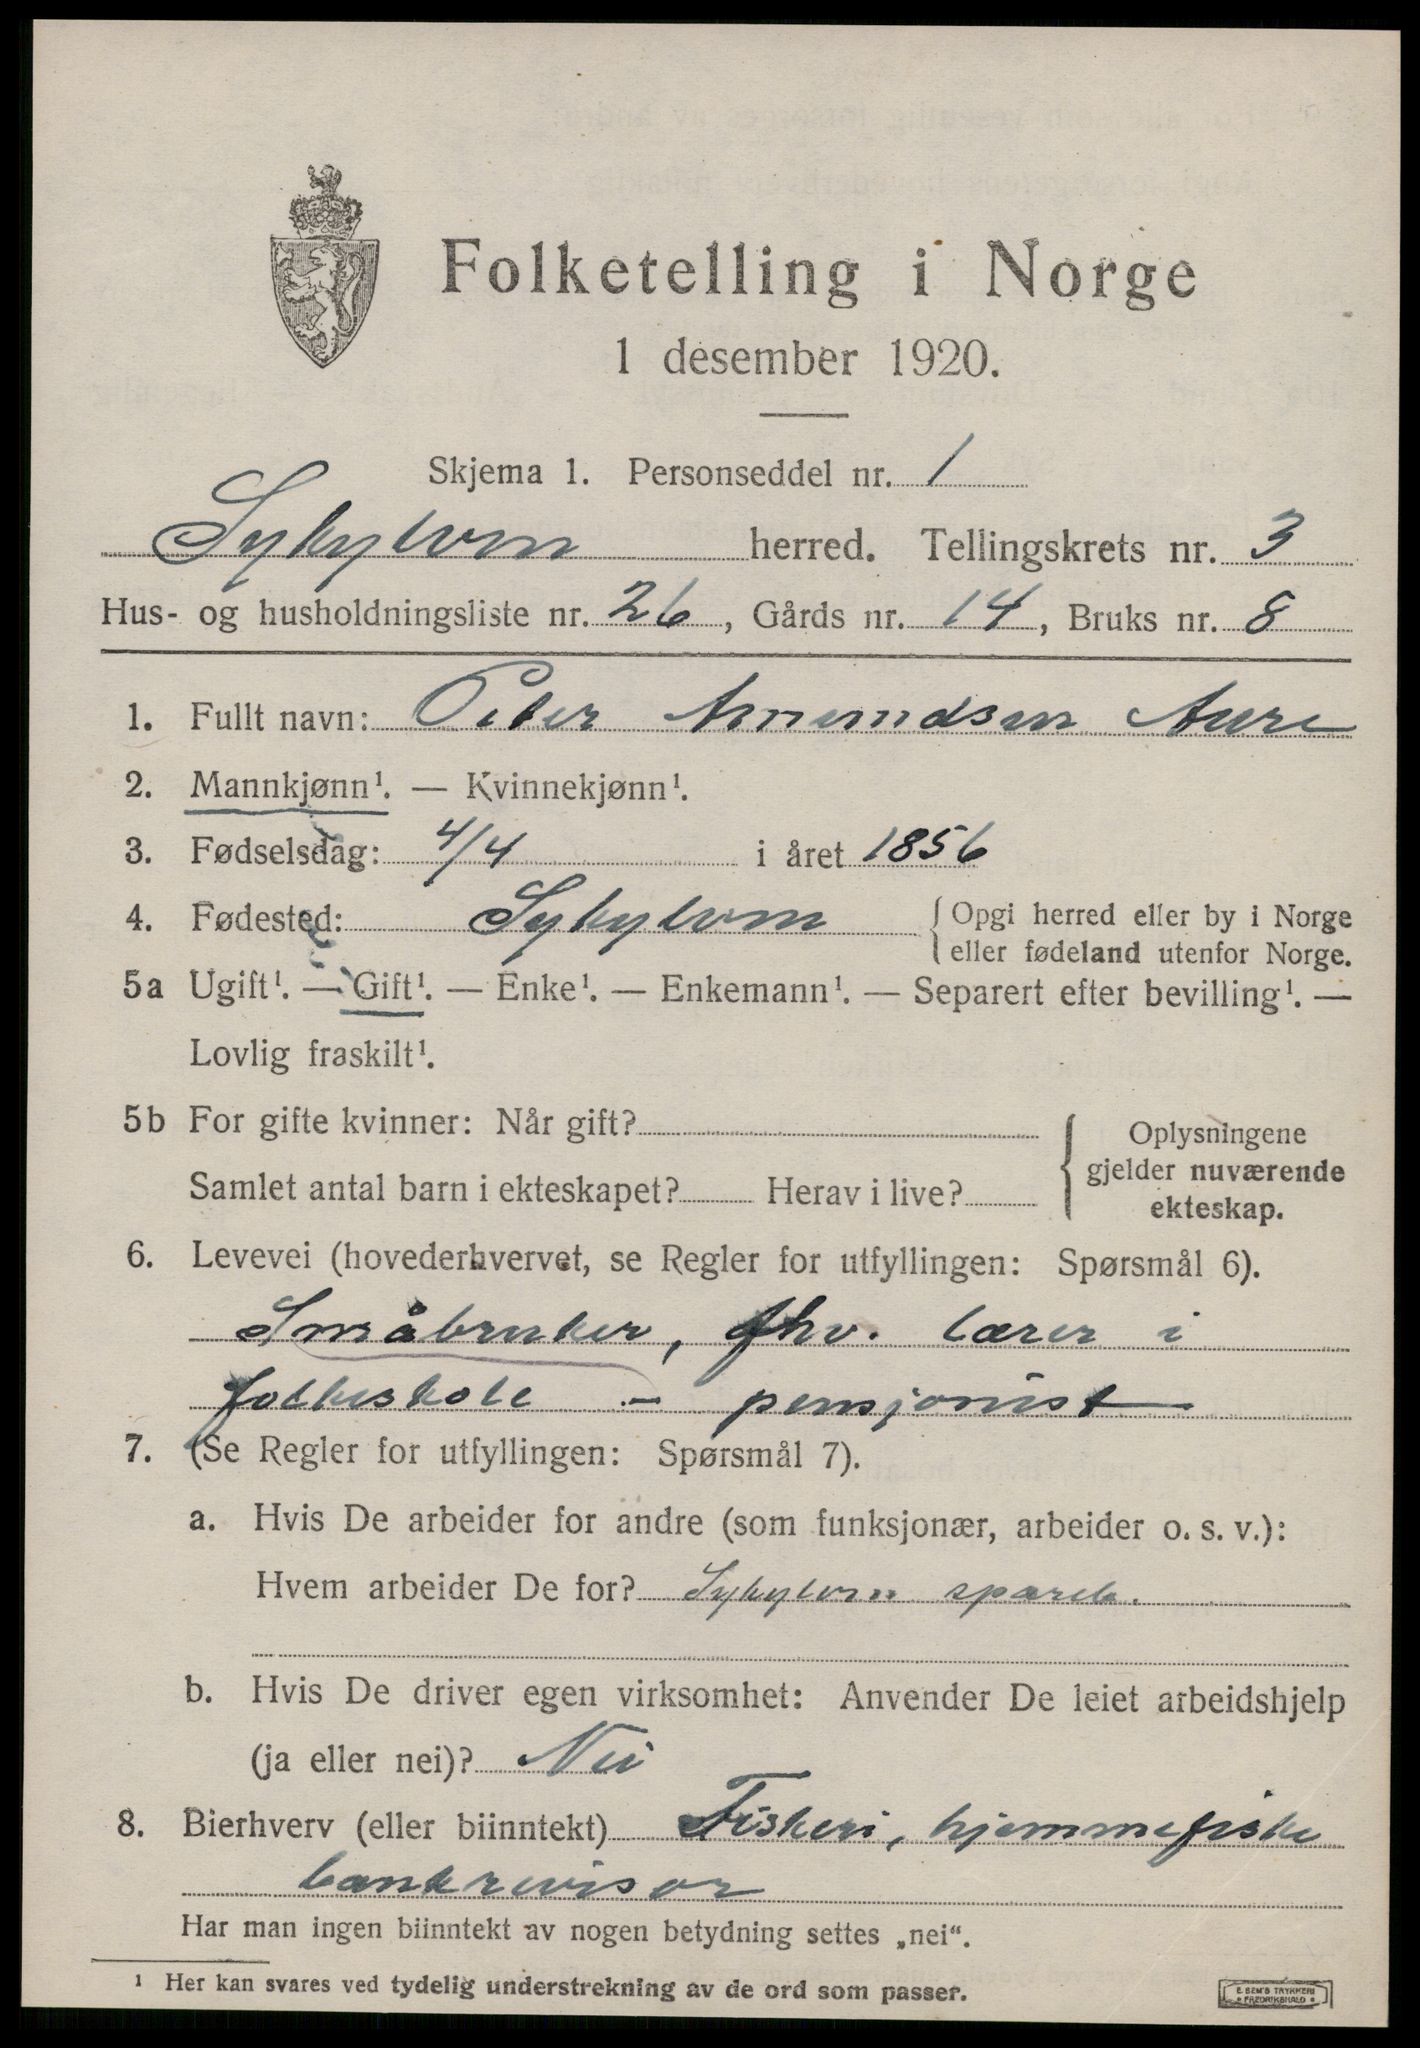 Folketelling i Norge
1 desember 1920.
Skjema 1. Personseddel nr. 1
Sykylven herred. Tellingskrets nr. 3
Hus- og husholdningsliste nr. 26, Gårds nr. 14, Bruks nr. 8
1. Fullt navn: Peter Amundsen Aure
2. Mannkjønn¹. — Kvinnekjønn¹.
3. Fødselsdag: 4/4 i året 1856
4. Fødested: Sykylven { Opgi herred eller by i Norge
eller fødeland utenfor Norge.
5a Ugift¹. — Gift¹. — Enke¹. — Enkemann¹. — Separert efter bevilling¹. —
Lovlig fraskilt¹.
5b For gifte kvinner: Når gift?
Samlet antal barn i ekteskapet? Herav i live?
Oplysningene
gjelder nuværende
ekteskap.
6. Levevei (hovederhvervet, se Regler for utfyllingen: Spørsmål 6).
Småbruker, fhv. lærer i
folkeskole - pensjonist
7. (Se Regler for utfyllingen: Spørsmål 7).
a. Hvis De arbeider for andre (som funksjonær, arbeider o. s. v.):
Hvem arbeider De for? Sykylven spareb.
b. Hvis De driver egen virksomhet: Anvender De leiet arbeidshjelp
(ja eller nei)? Nei
8. Bierhverv (eller biinntekt) Fiskeri, hjemmefiske
bankrevisor
Har man ingen biinntekt av nogen betydning settes „nei“.
¹ Her kan svares ved tydelig understrekning av de ord som passer.
E. SEM'S TRYKKERI
FREDRIKSHALD